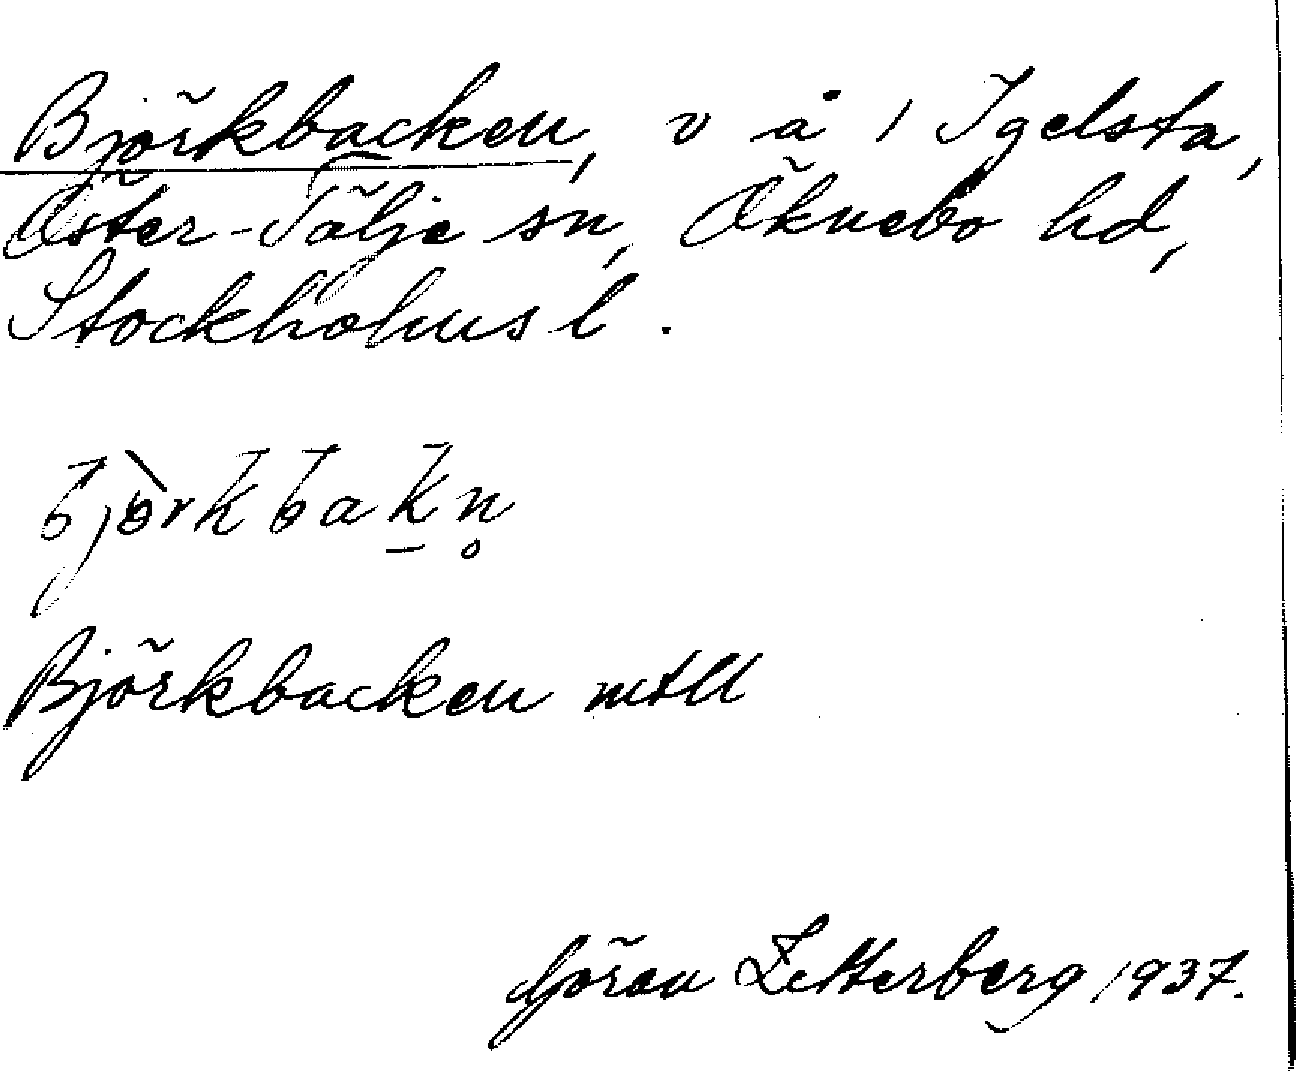 Björkbacken, v å 1 Igelsta,
Öster-Tälje sn, Öknebo hd,
Stockholms l.
bjòrkbakn̥
Björkbacken mtll
Göran Zetterberg 1937.